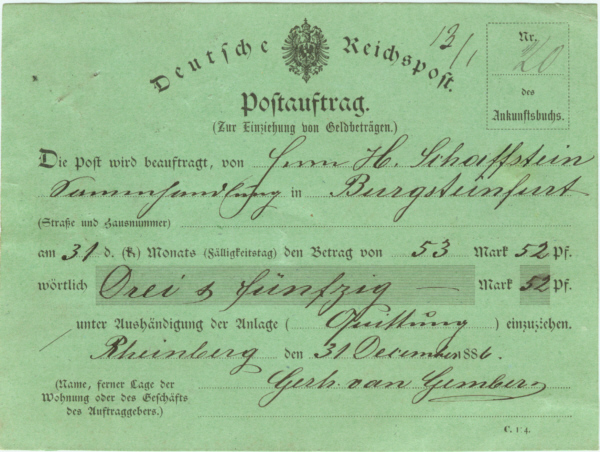 Deutsche Reichspost.
13/1
Nr. 20
des
Ankunftsbuchs.
Postauftrag.
(Zur Einziehung von Geldbeträgen.)
Die Post wird beauftragt, von Herrn H. Schaffstein
Samenhandlung in Burgsteinfurt
(Straße und Hausnummer)
am 31 d. (k) Monats (Fälligkeitstag) den Betrag von 53 Mark 52 Pf.
wörtlich Drei & fünfzig — Mark 52 Pf.
unter Aushändigung der Anlage ( Quittung ) einzuziehen.
Rheinberg den 31 December 1886.
(Name, ferner Lage der
Wohnung oder des Geschäfts
des Auftraggebers.)
Gerh. van Gember
C. 14.